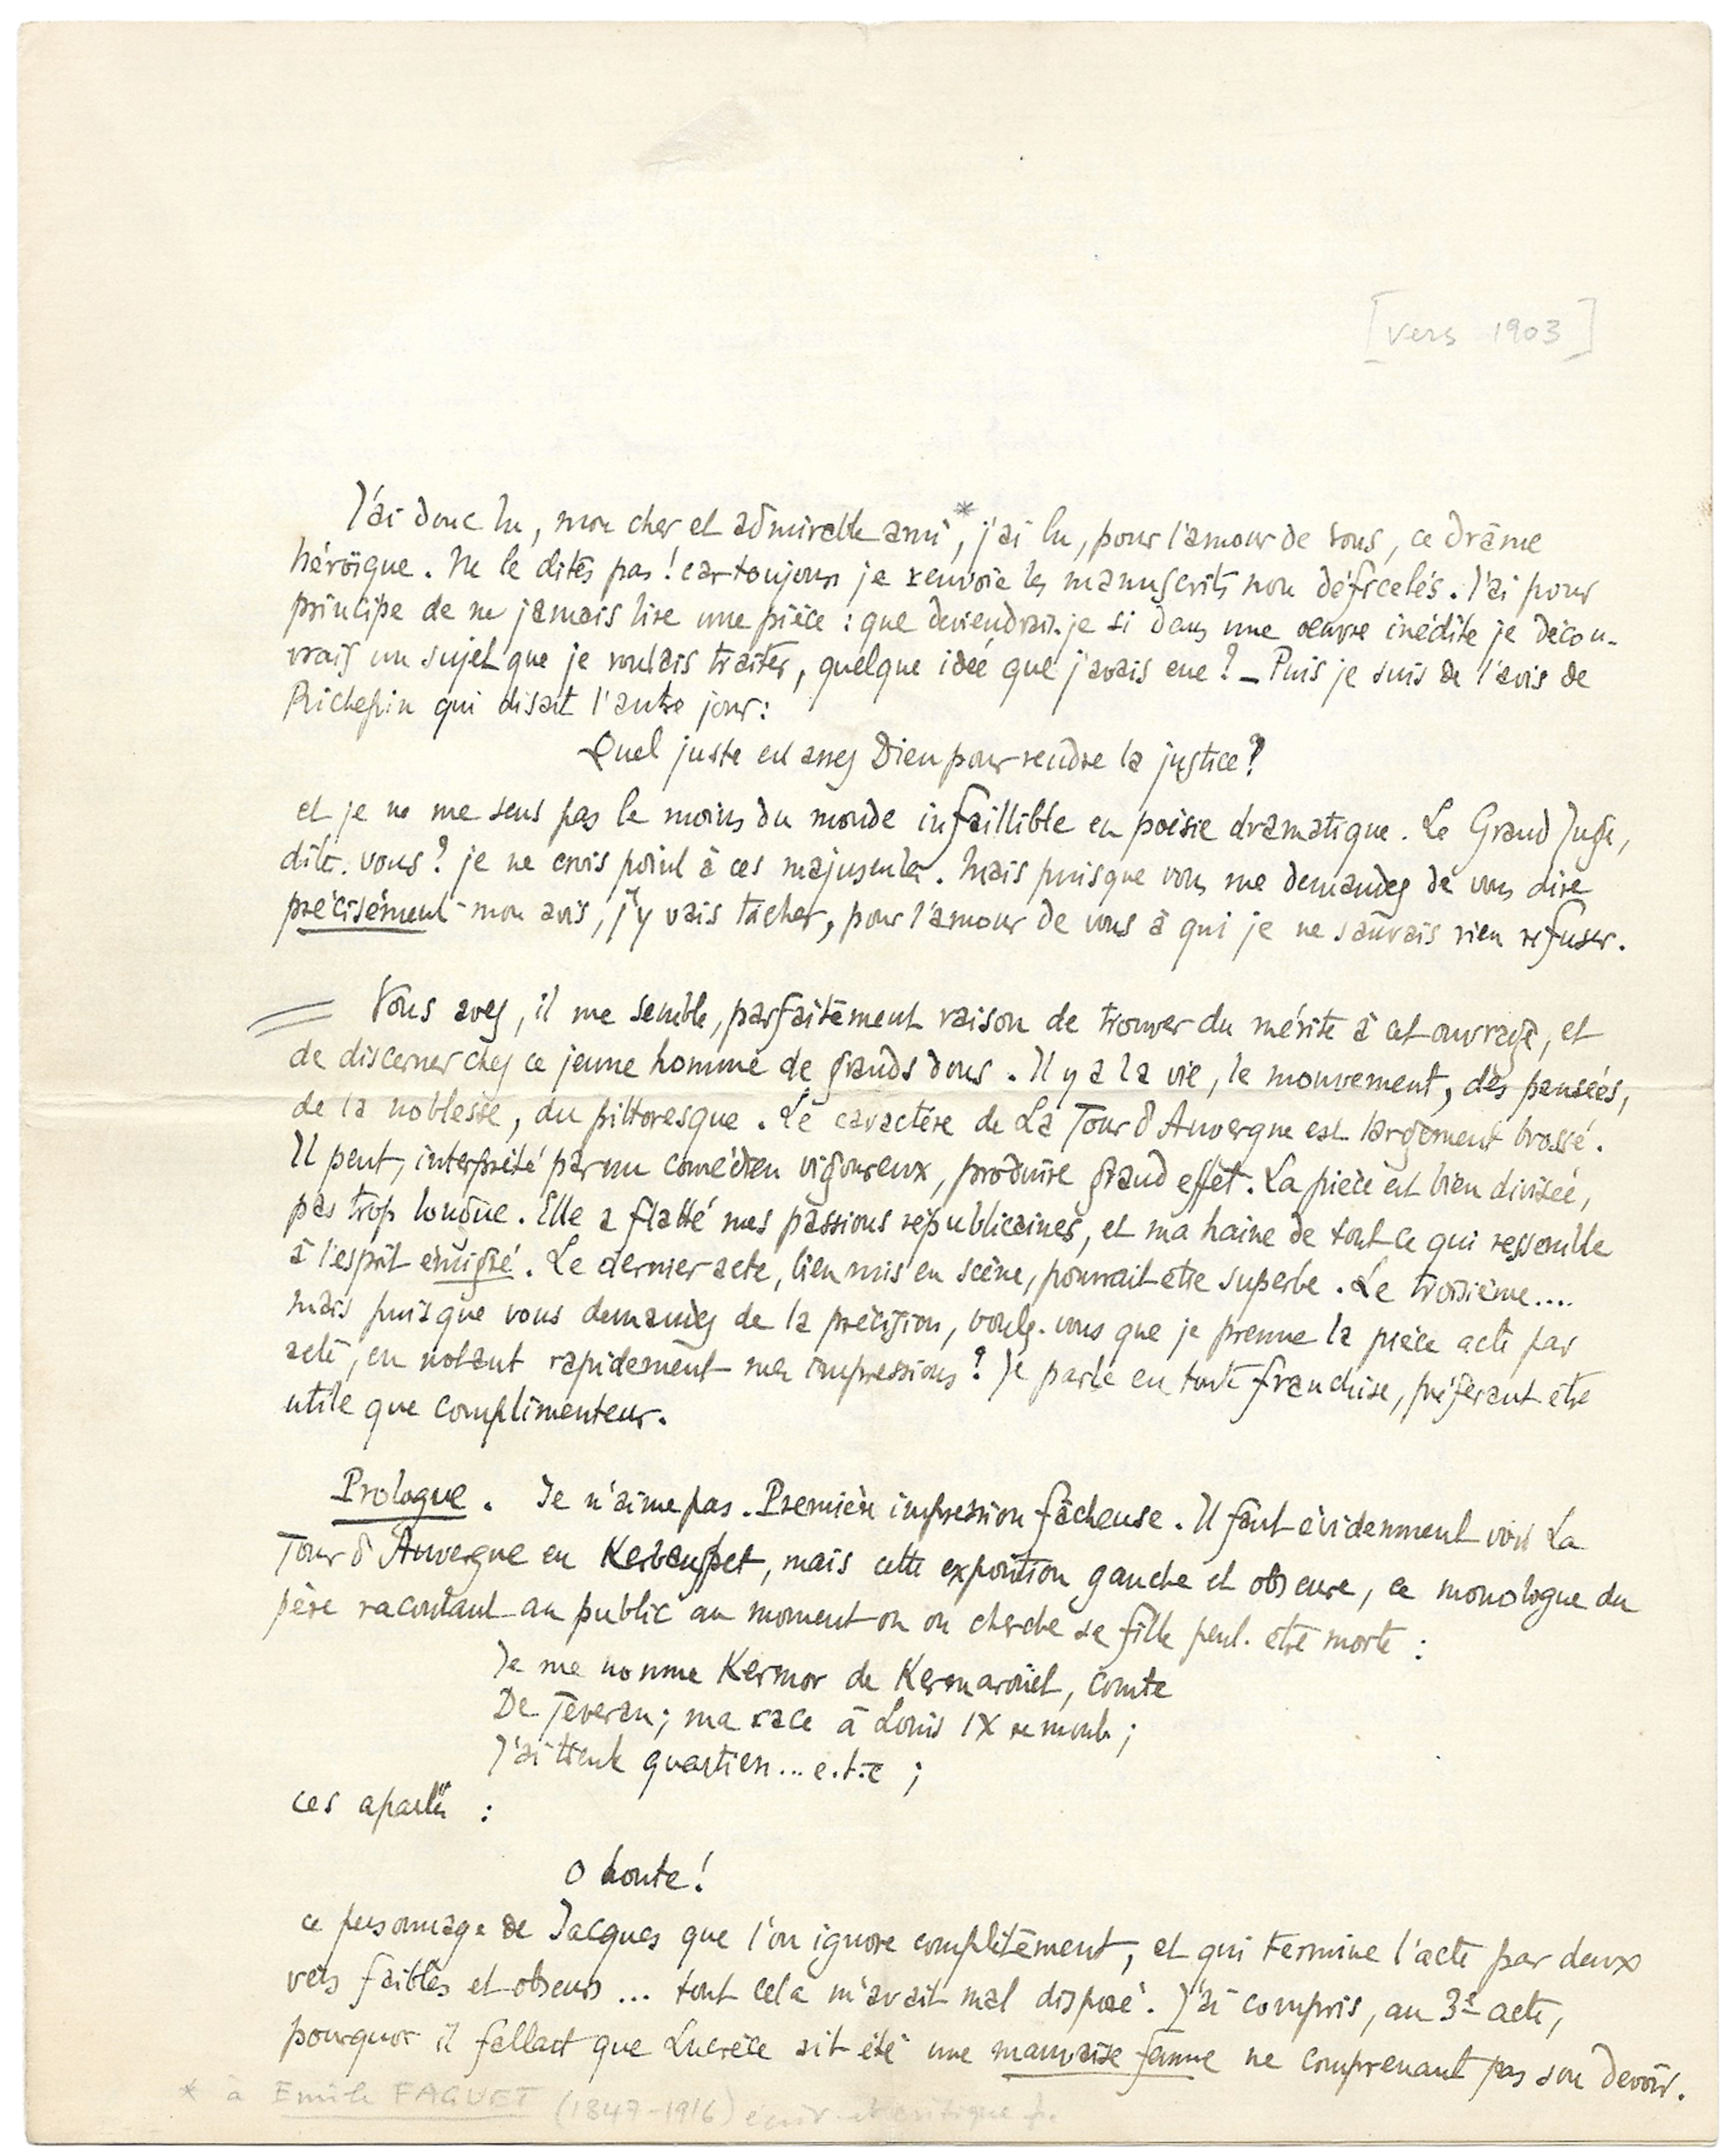 [vers 1903]
J'ai donc lu, mon cher et admirable ami*, j'ai lu, pour l'amour de vous, ce drame
héroïque. Ne le dites pas ! car toujours je renvoie les manuscrits non déficelés. J'ai pour
principe de ne jamais lire une pièce : que deviendrais-je si dans une œuvre inédite je décou-
vrais un sujet que je voulais traiter, quelque idée que j'avais eue ? – Puis je suis de l'avis de
Richepin qui disait l'autre jour :
Quel juste est assez Dieu pour rendre la justice ?
et je ne me sens pas le moins du monde infaillible en poésie dramatique. Le Grand Juge,
dites-vous ? je ne crois point à ces majuscules. Mais puisque vous me demandez de vous dire
précisément mon avis, j'y vais tâcher, pour l'amour de vous à qui je ne saurais rien refuser.
Vous avez, il me semble, parfaitement raison de trouver du mérite à cet ouvrage, et
de discerner chez ce jeune homme de grands dons. Il y a la vie, le mouvement, des pensées,
de la noblesse, du pittoresque. Le caractère de La Tour d'Auvergne est largement brossé.
Il peut, interprété par un comédien vigoureux, produire grand effet. La pièce est bien divisée,
pas trop longue. Elle a flatté mes passions républicaines, et ma haine de tout ce qui ressemble
à l'esprit émigré. Le dernier acte, bien mis en scène, pourrait être superbe. Le troisième....
Mais puisque vous demandez de la précision, voulez-vous que je prenne la pièce acte par
acte, en notant rapidement mes impressions ? Je parle en toute franchise, préférant être
utile que complimenteur.
Prologue. Je n'aime pas. Première impression fâcheuse. Il faut évidemment voir La
Tour d'Auvergne en , mais cette exposition gauche et obscure, ce monologue du
père racontant au public au moment où on cherche sa fille peut-être morte :
Je me nomme Kermor de Kermarouët, comte
De Téveran ; ma race à Louis IX remonte ;
J'ai trente quartiers... e.t.c ;
ces apartés :
O honte !
ce personnage de Jacques que l'on ignore complètement, et qui termine l'acte par deux
vers faibles et obscurs ... tout cela m'avait mal disposé. J'ai compris, au 3e acte,
pourquoi il fallait que Lucrèce ait été une mauvaise femme ne comprenant pas son devoir.
* à Emile FAGUET (1847-1916) écriv. et critique f.